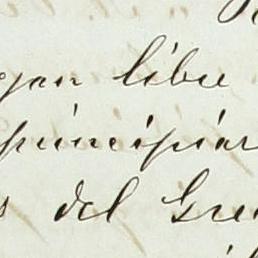 gan libre
principiar
s del Gre